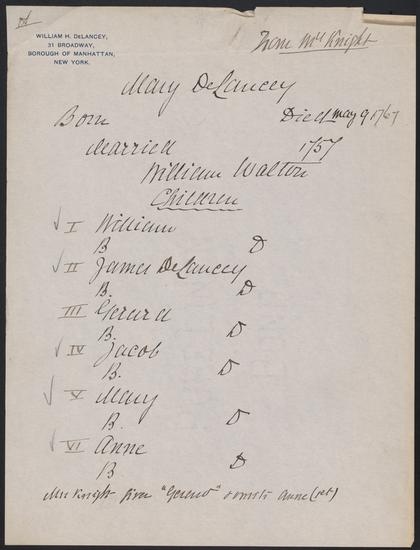 WILLIAM H. DeLANCEY,
31 BROADWAY,
BOROUGH OF MANHATTAN,
NEW YORK.
From Mrs Knight
Mary DeLancey
Born Died May 9 1767
Married 1757
William Walton
Children
I William
B D
II James DeLancey
B. D
III Gerard
B. D
IV Jacob
B. D
V Mary
B. D
VI Anne
B D
Mrs Knight gives "Gerard" & omits Anne